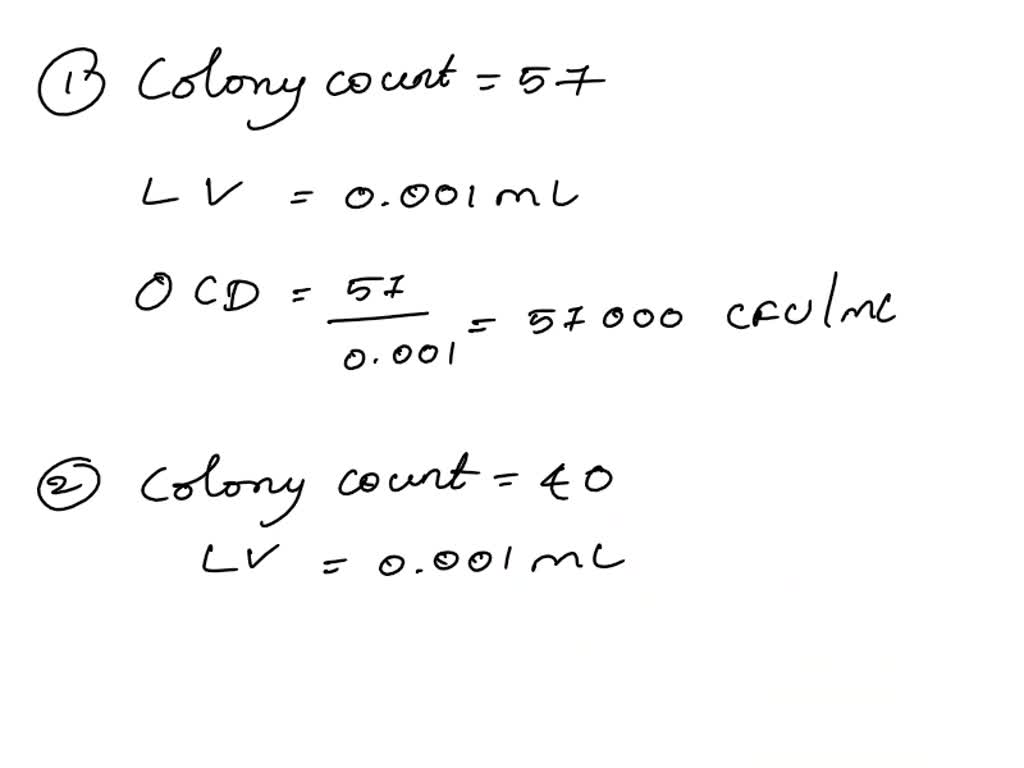 ① Colony count = 57
LV = 0.001 mL
OCD = 57 / 0.001 = 57000 CFU/mL
② Colony count = 40
LV = 0.001 mL